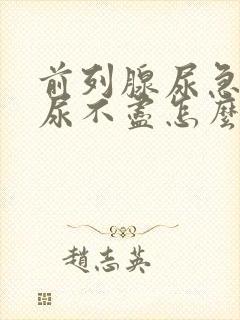 前列腺尿急
尿不盡怎麼
趙志英